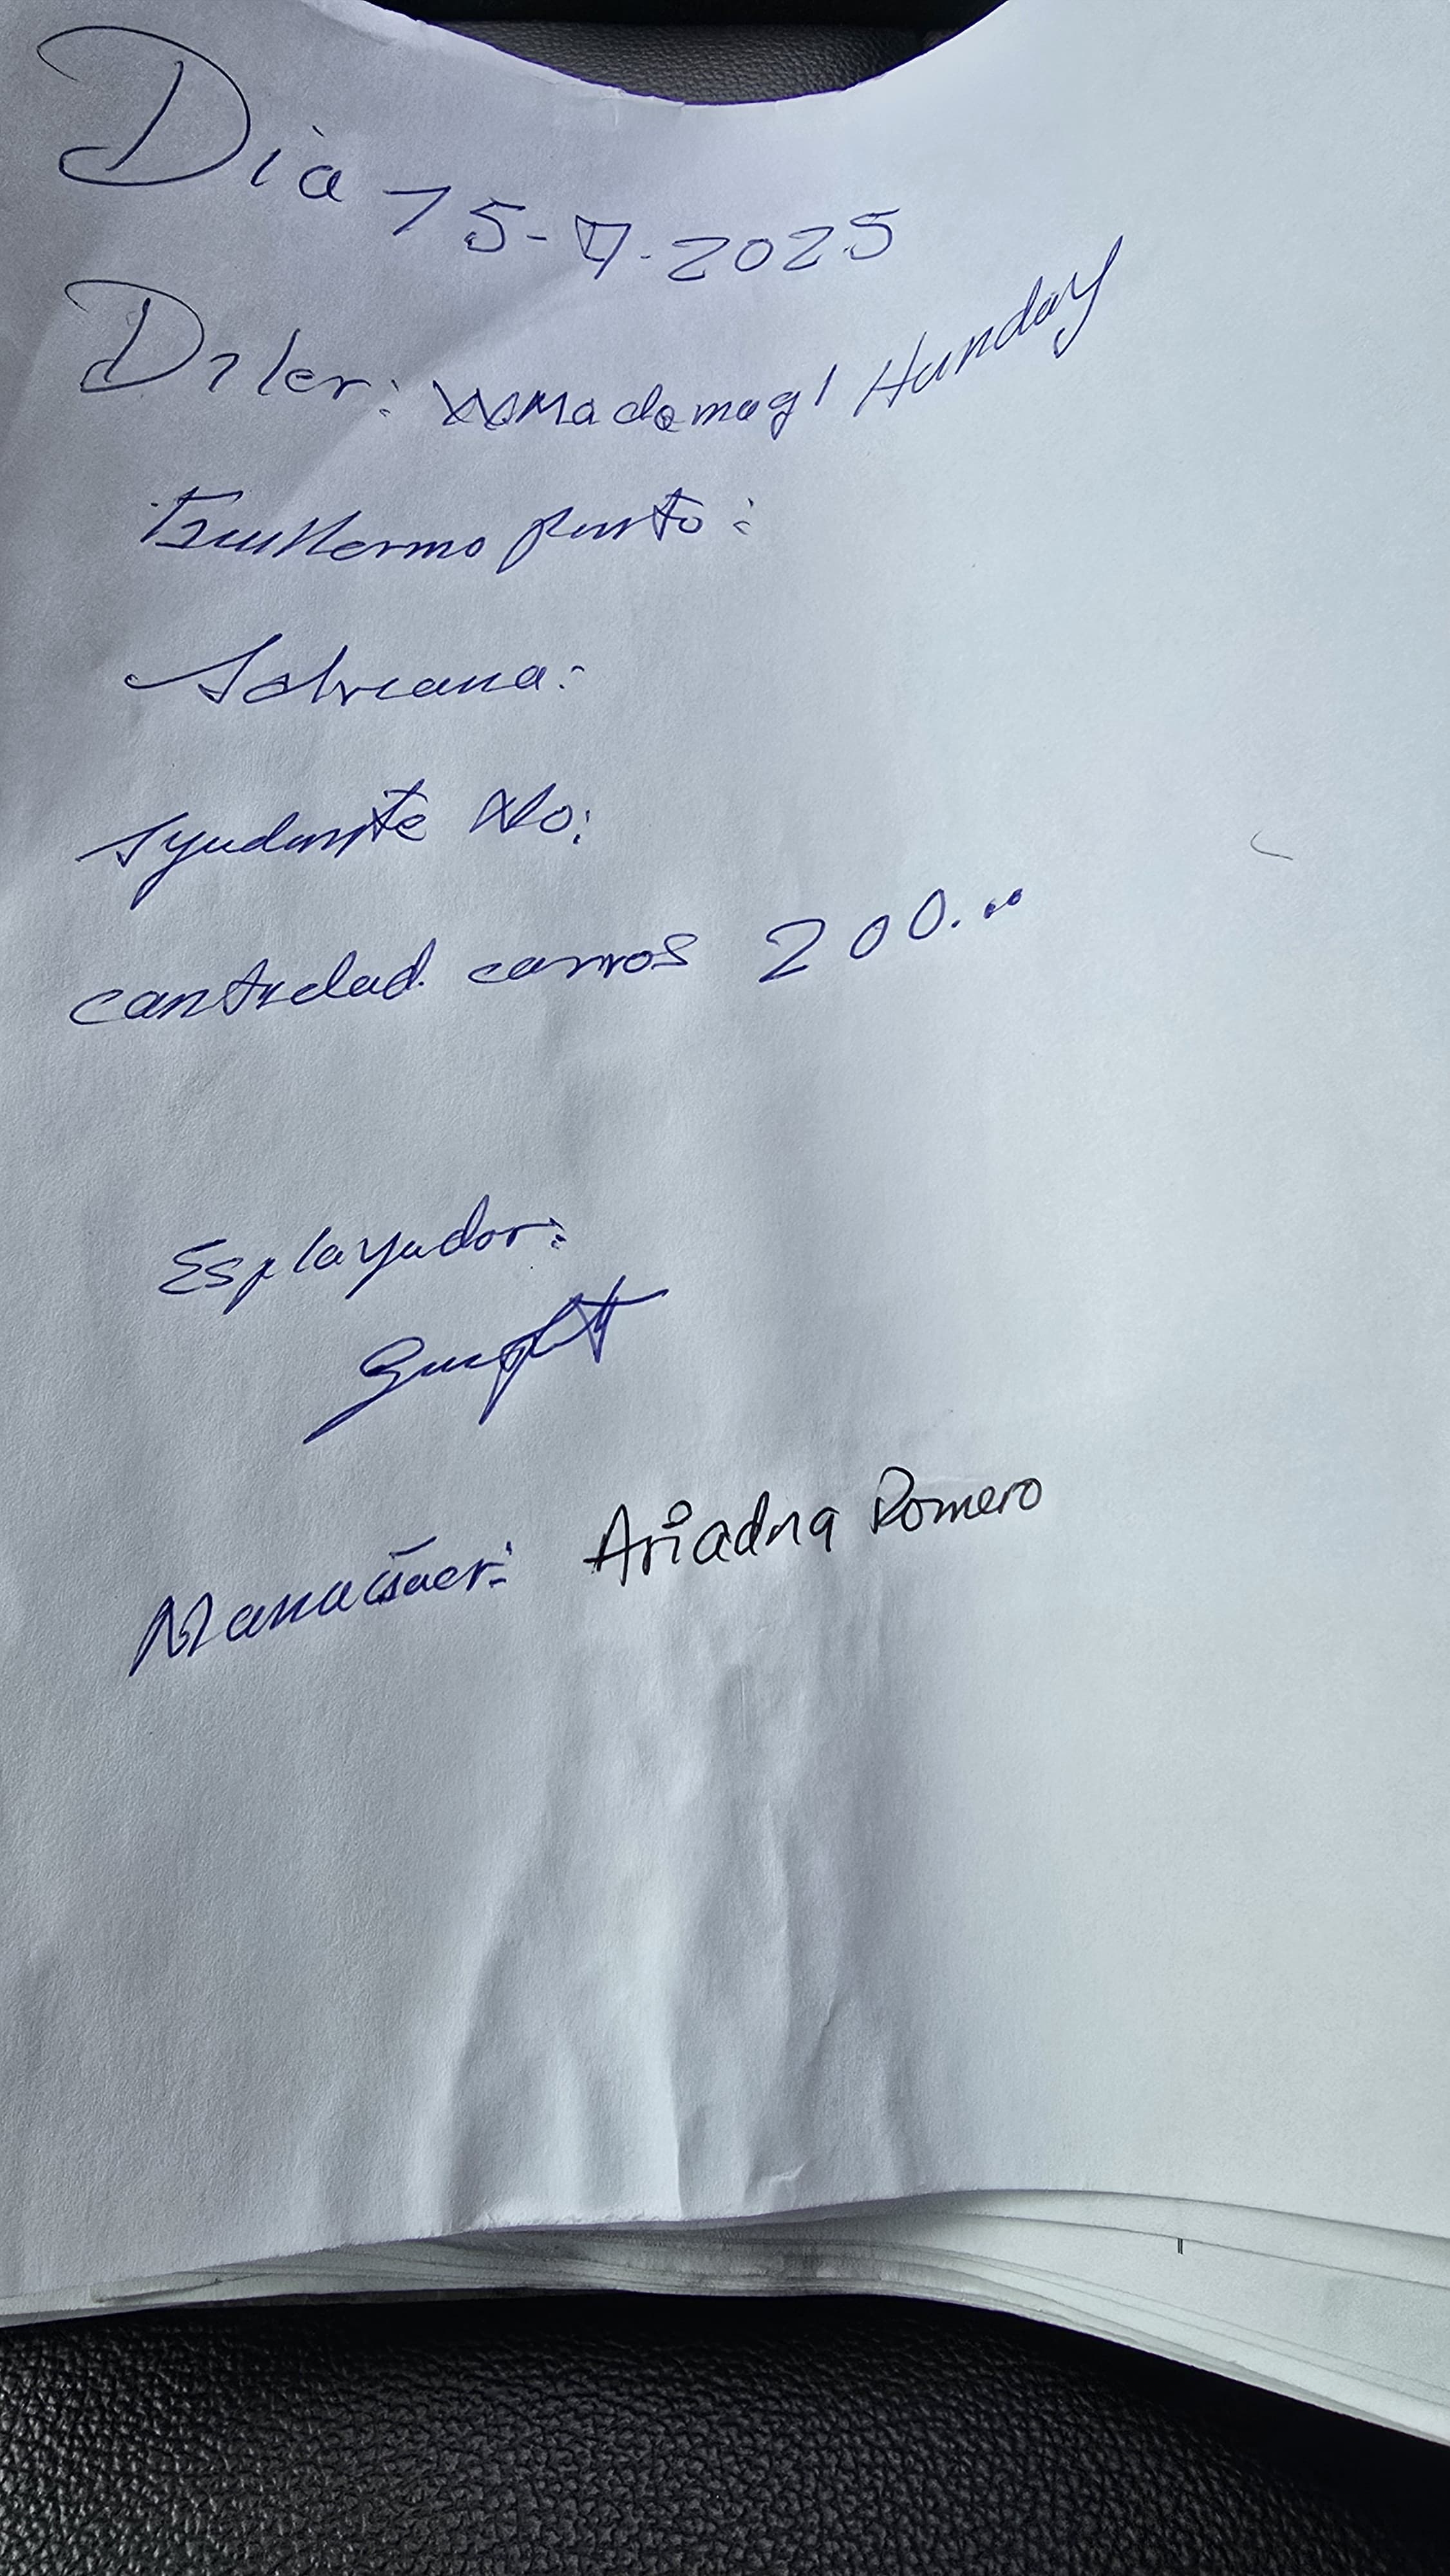 Dia 15-7-2025
Diler: Madamagl Hunday
Guillermo punto:
Adriana:
Ayudante No:
cantidad carros 200...
Esplayador:
Manaiser: Ariadna Romero